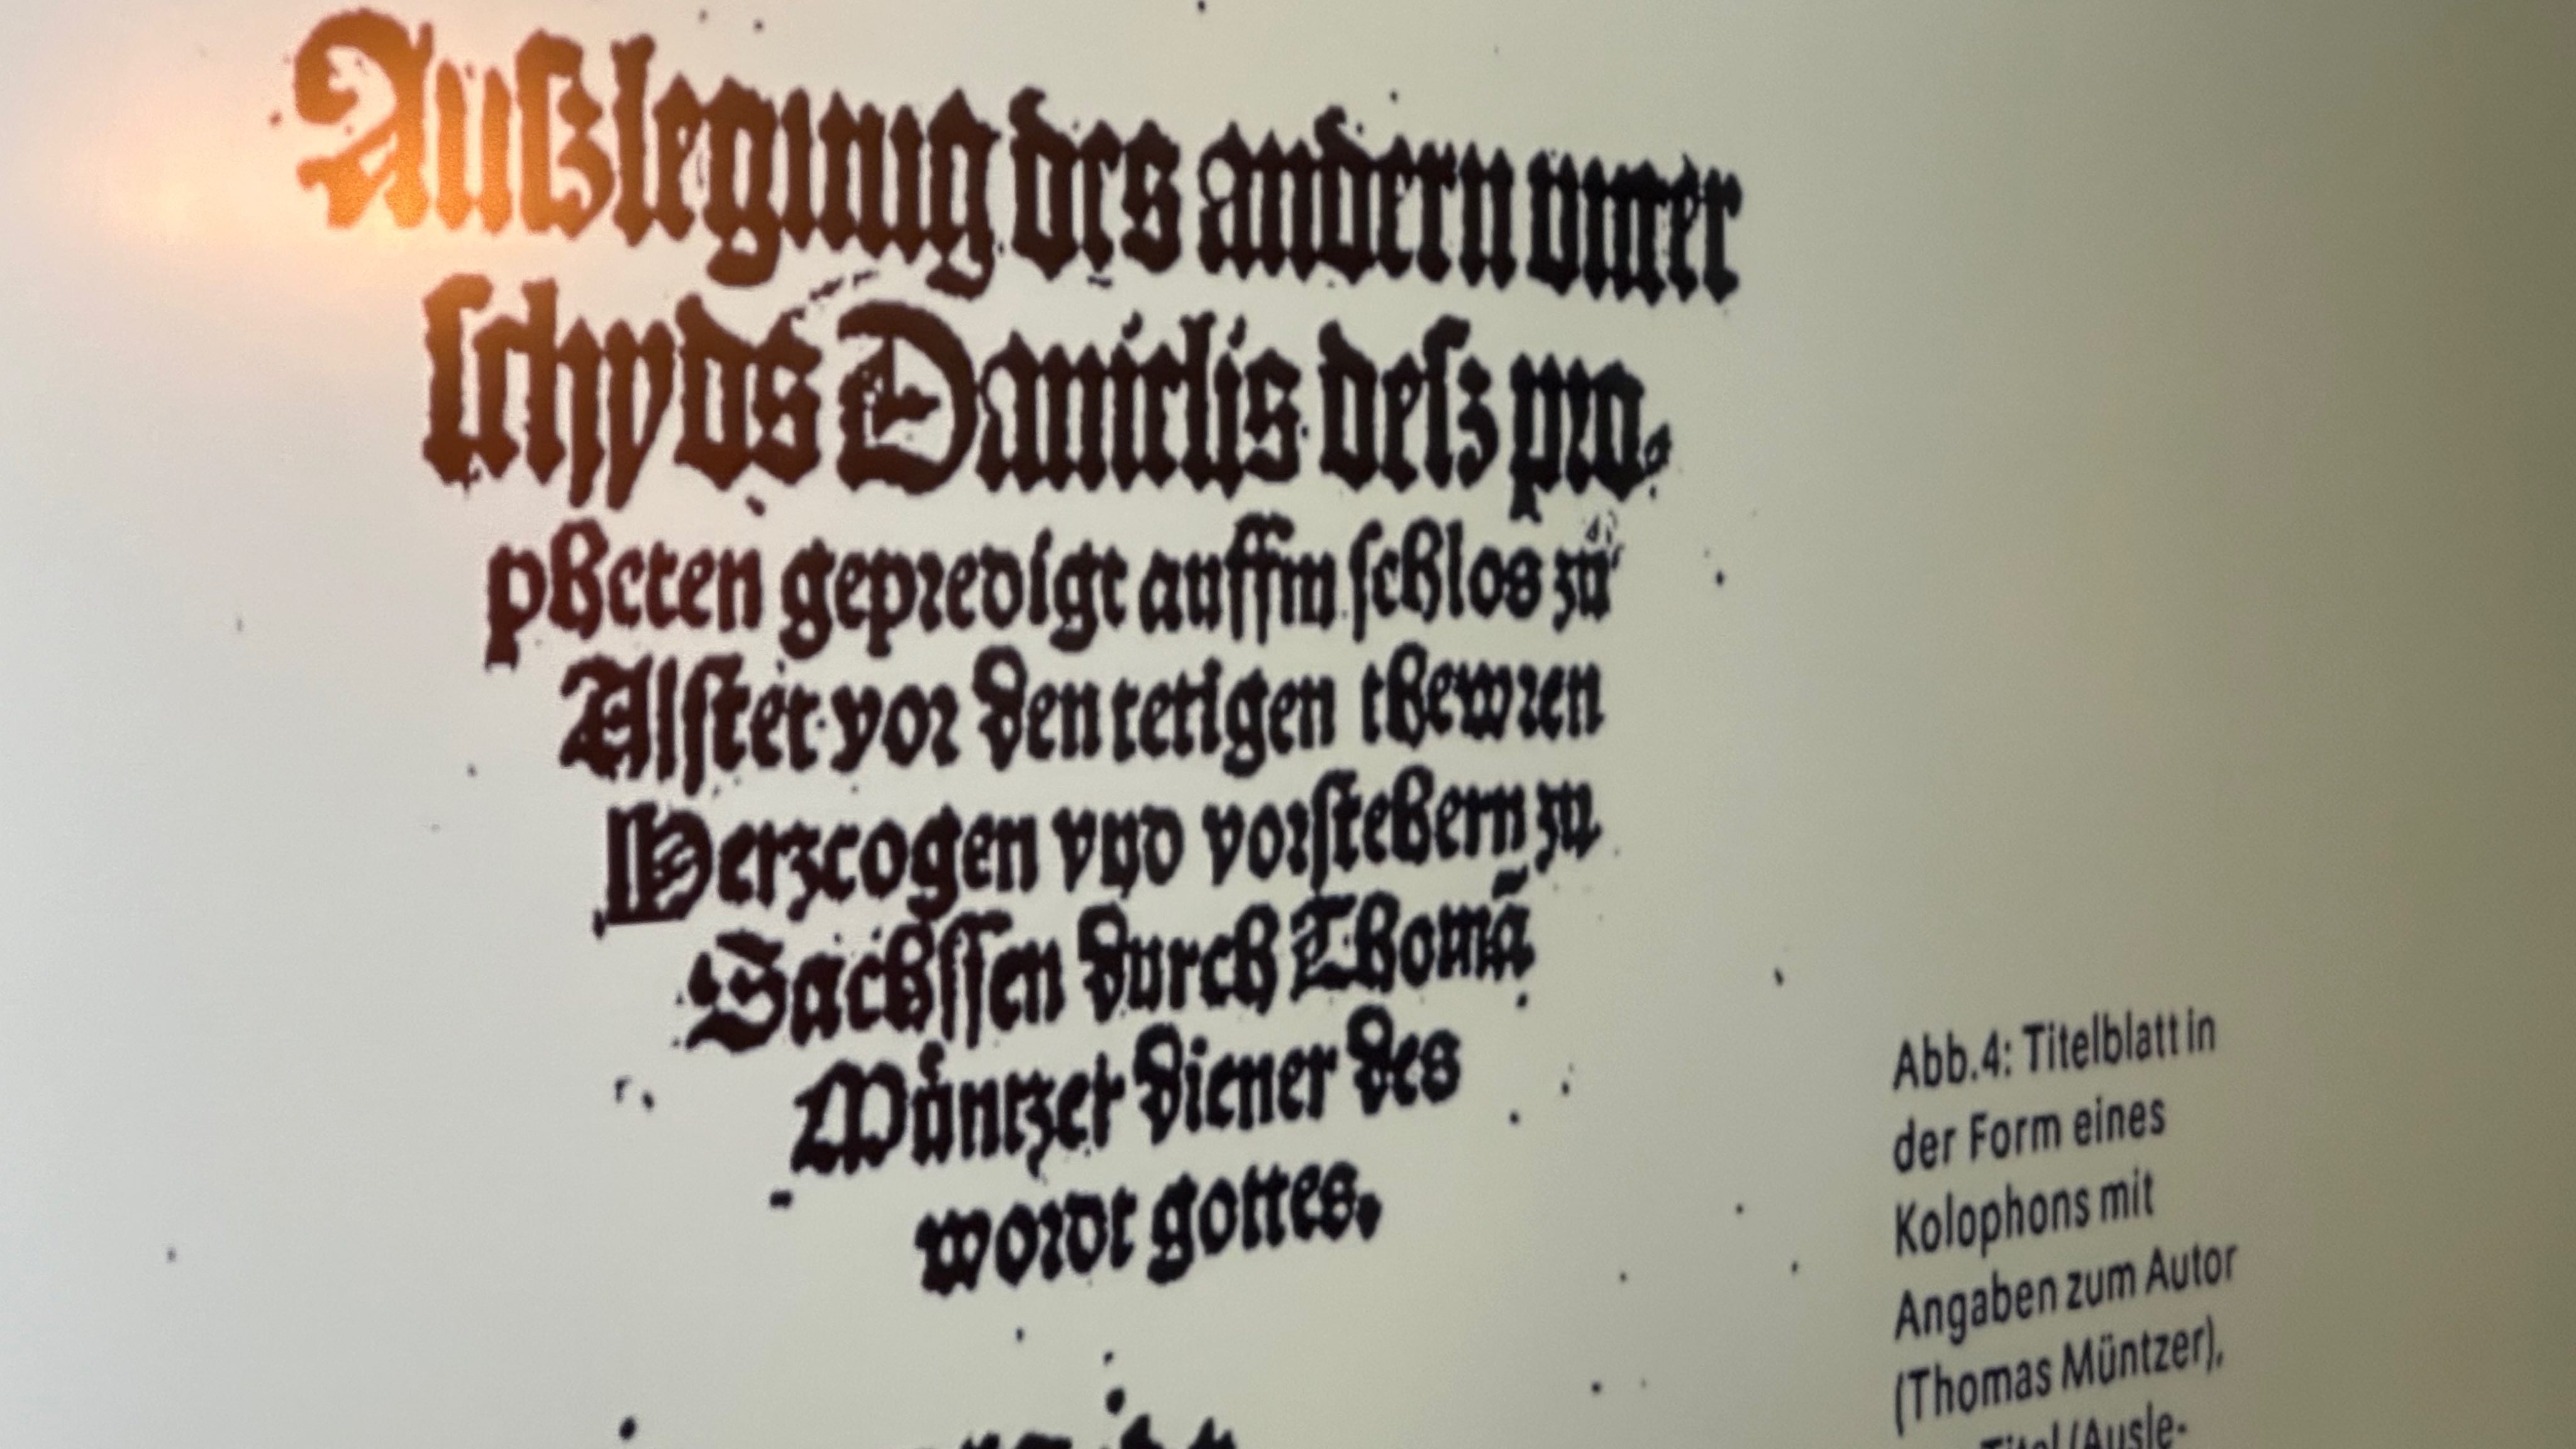 Außlegung des andern vnter
schyds Danielis desz pro,
pheten gepredigt auffm schlos zu
Alstet vor den tetigen thewren
Herzcogen vnd vorstehern zu
Sachssen durch Thomā
Müntzer diener des
wordt gottes.
Abb.4: Titelblatt in
der Form eines
Kolophons mit
Angaben zum Autor
(Thomas Müntzer),
Titel (Ausle-